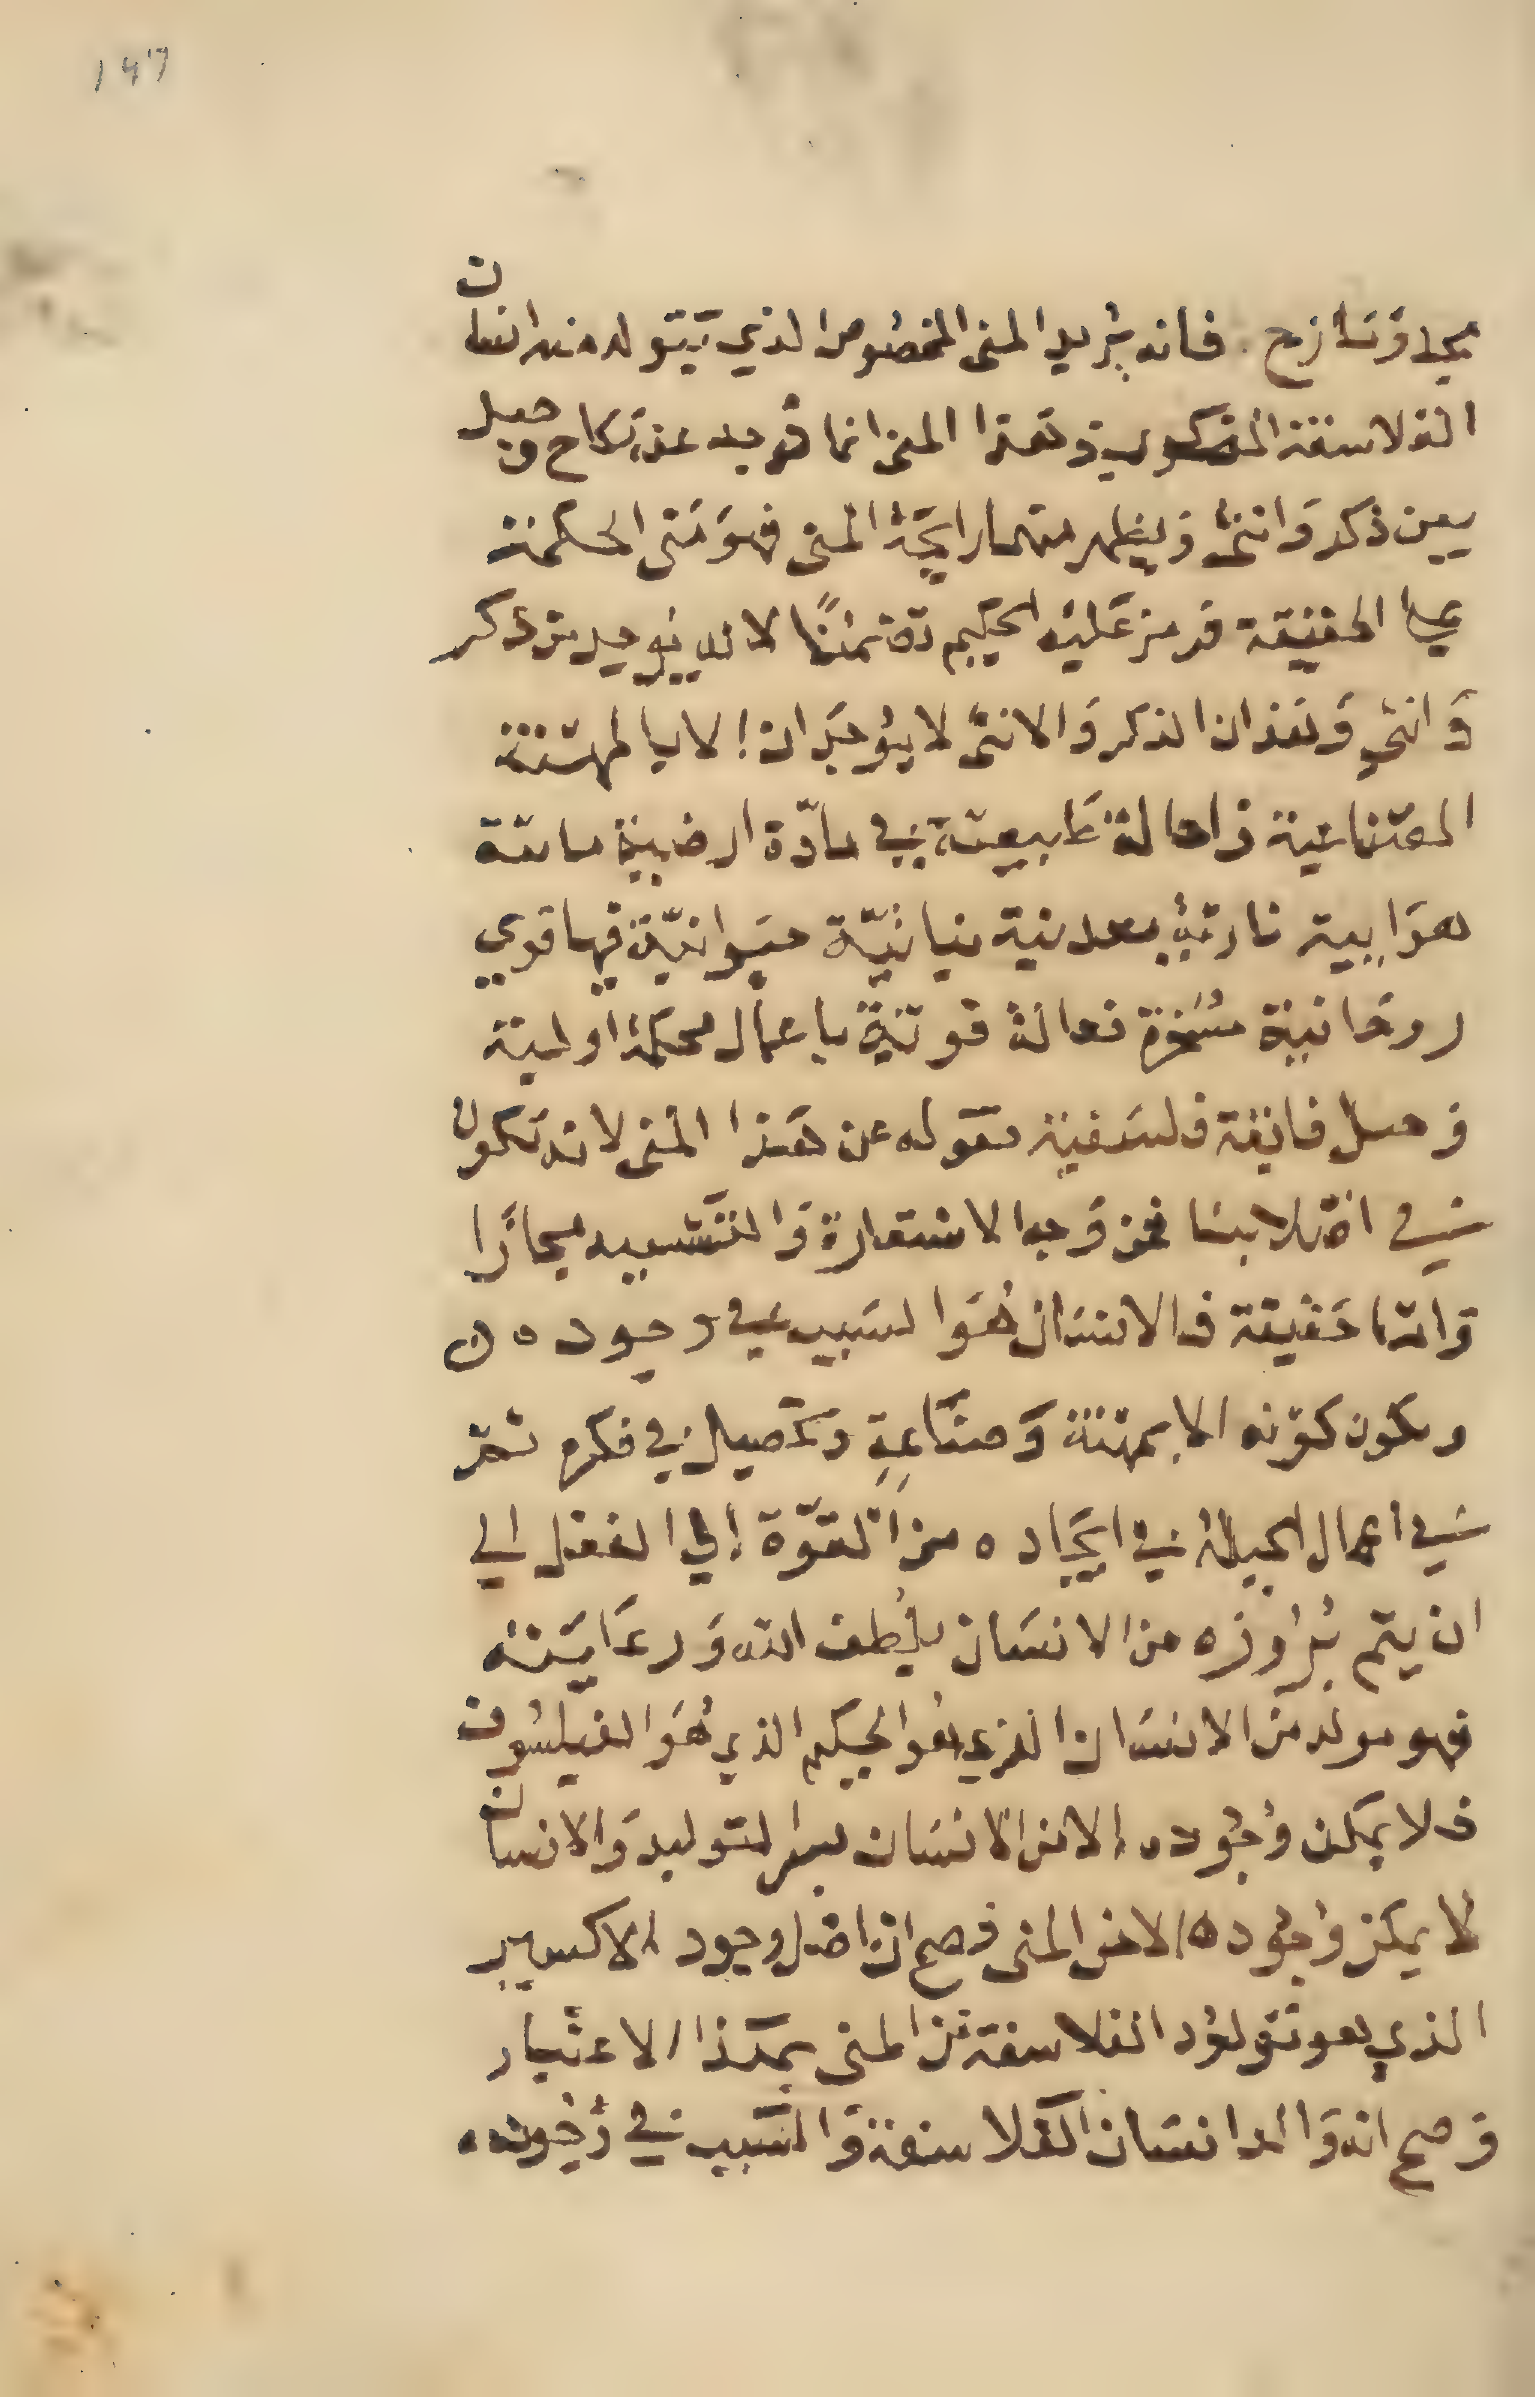 ١٤٦
فانه يريد المنى المخصوص الذي يتولد منه انسان
الفلاسفة المذكور وهذا المنى انما يوجد عن نكاح وحبل
بين ذكر وانثى ويظهر منهما رايحة المنى فهو منى الحكمة
على الحقيقة رمز عليه الحكيم لانه يوجد من ذكر
وانثي وهذان الذكر والانثى لا يوجدان إلا بالمهنة
الصناعية طبيعية في مادة ارضية مائة
هوايية نارية معدنية نباتية حيوانية فيها قوي
روحانية مسخرة فعالة قوتية باعمال محكمة اولية
وحيل فايقة فلسفية بقوله عن هذا المنى لانه تكون
في ابداننا فمن وجه الاستعارة والتشبيه مجازا
واما حقيقة فالانسان هو السبب في وجوده
ويكون كونه الا بمهنة وصناعة وتحصيل في فكره ثم
في اعمال الحيلة في ايجاده من القوة إلي الفعل الي
ان يتم بروزه من الانسان بلطف الله ورعايته
فهو مولد من الانسان الذي هو الحكيم الذي هو الفيلسوف
فلا يمكن وجوده الا من الانسان بسر التوليد والانسان
لا يمكن وجوده الا من المنى فصح ان اصل وجود الاكسير
الذي هو مولود الفلاسفة من المنى بهذا الاعتبار
وصح انه والد انسان الفلاسفة والسبب في وجوده